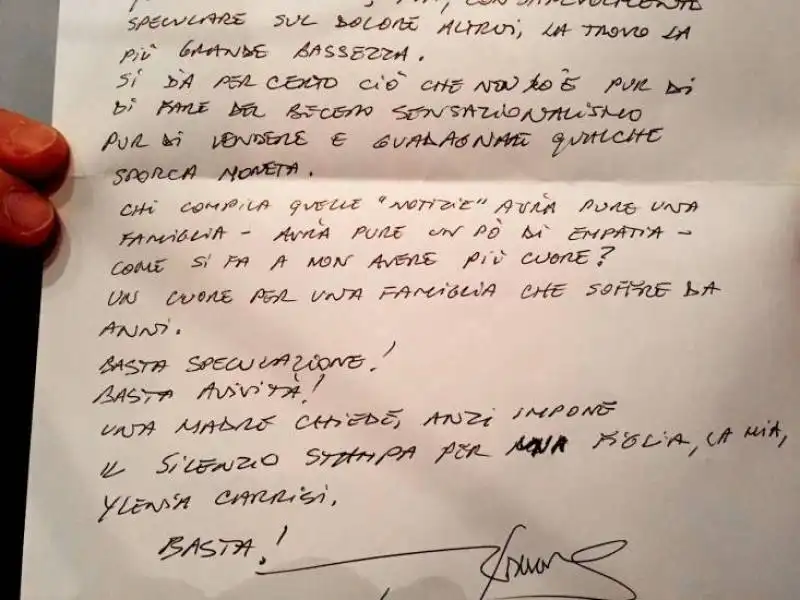 SPECULARE SUL DOLORE ALTRUI, LA TROVO LA
PIÙ GRANDE BASSEZZA.
SI DÀ PER CERTO CIÒ CHE NON LO È PUR DI
DI FARE DEL BECERO SENSAZIONALISMO
PUR DI VENDERE E GUADAGNARE QUALCHE
SPORCA MONETA.
CHI COMPILA QUELLE "NOTIZIE" AVRÀ PURE UNA
FAMIGLIA - AVRÀ PURE UN PÒ DI EMPATIA -
COME SI FA A NON AVERE PIÙ CUORE?
UN CUORE PER UNA FAMIGLIA CHE SOFFRE DA
ANNI.
BASTA SPECULAZIONE!
BASTA AVIVITÀ!
UNA MADRE CHIEDE, ANZI IMPONE
IL SILENZIO STAMPA PER UNA FIGLIA, LA MIA,
YLENIA CARRISI.
BASTA!